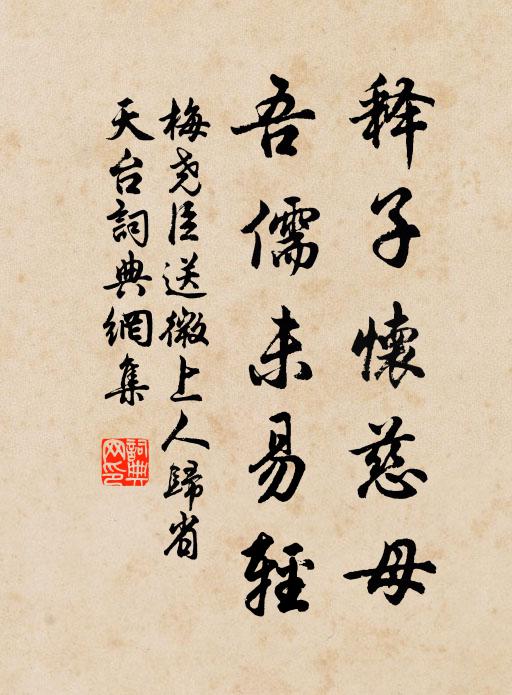 释子懷慈母
吾儒未易輕
梅尧臣送微上人歸省
天台詞典網集
詞典网印